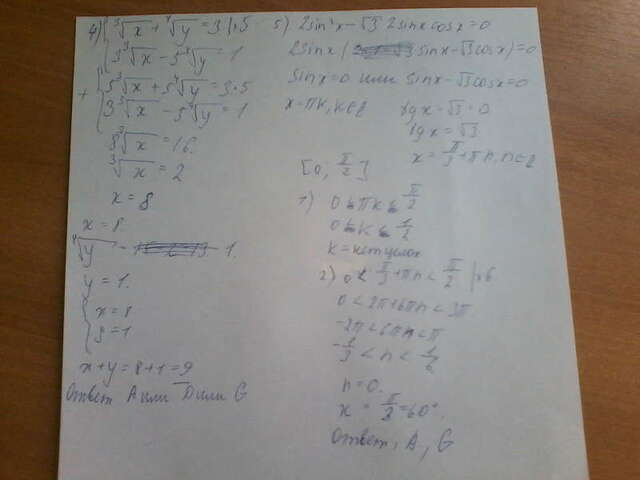 4) { ³√x + ⁴√y = 3 | · 5
3 ³√x - 5 ⁴√y = 1
+ { 5 ³√x + 5 ⁴√y = 3·5
3 ³√x - 5 ⁴√y = 1
8 ³√x = 16.
³√x = 2
x = 8
x = 8.
⁴√y = 1.
y = 1.
{ x = 8
y = 1
x + y = 8 + 1 = 9
Ответ А или D или G
5) 2sin²x - √3 2sinx cosx = 0
2sinx ( sinx - √3 cosx) = 0
sinx = 0 или sinx - √3 cosx = 0
x = πk, k ∈ Z
tgx - √3 = 0
tgx = √3
x = π/3 + πn, n ∈ Z
[0, π/2]
1) 0 < πk < π/2
0 < k < 1/2
k = нет целых
2) 0 < π/3 + πn < π/2 | · 6
0 < 2π + 6πn < 3π
-2π < 6πn < π
-1/3 < n < 1/6
n = 0.
x = π/3 = 60°.
Ответ, А, G